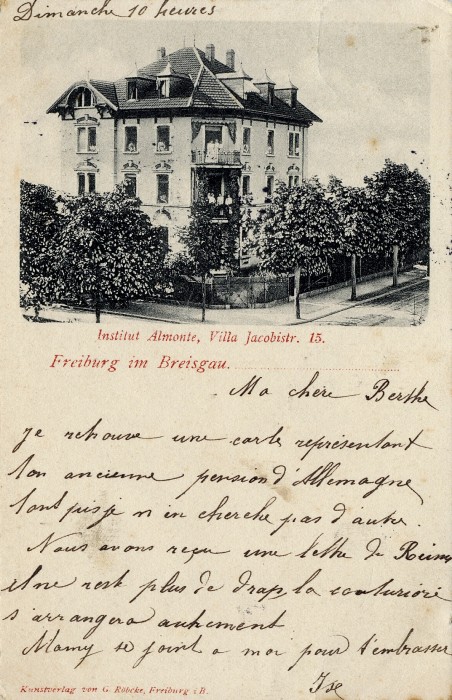 Dimanche 10 heures
Institut Almonte, Villa Jacobistr. 15.
Freiburg im Breisgau.
Ma chère Berthe
je retrouve une carte représentant
ton ancienne pension d'Allemagne
tant pis je n'en cherche pas d'autre.
Nous avons reçu une lettre de Reims
il ne reste plus de drap la couturière
s'arrangera autrement
Mamy se joint a moi pour t'embrasser
Kunstverlag von G. Röbcke, Freiburg i. B.